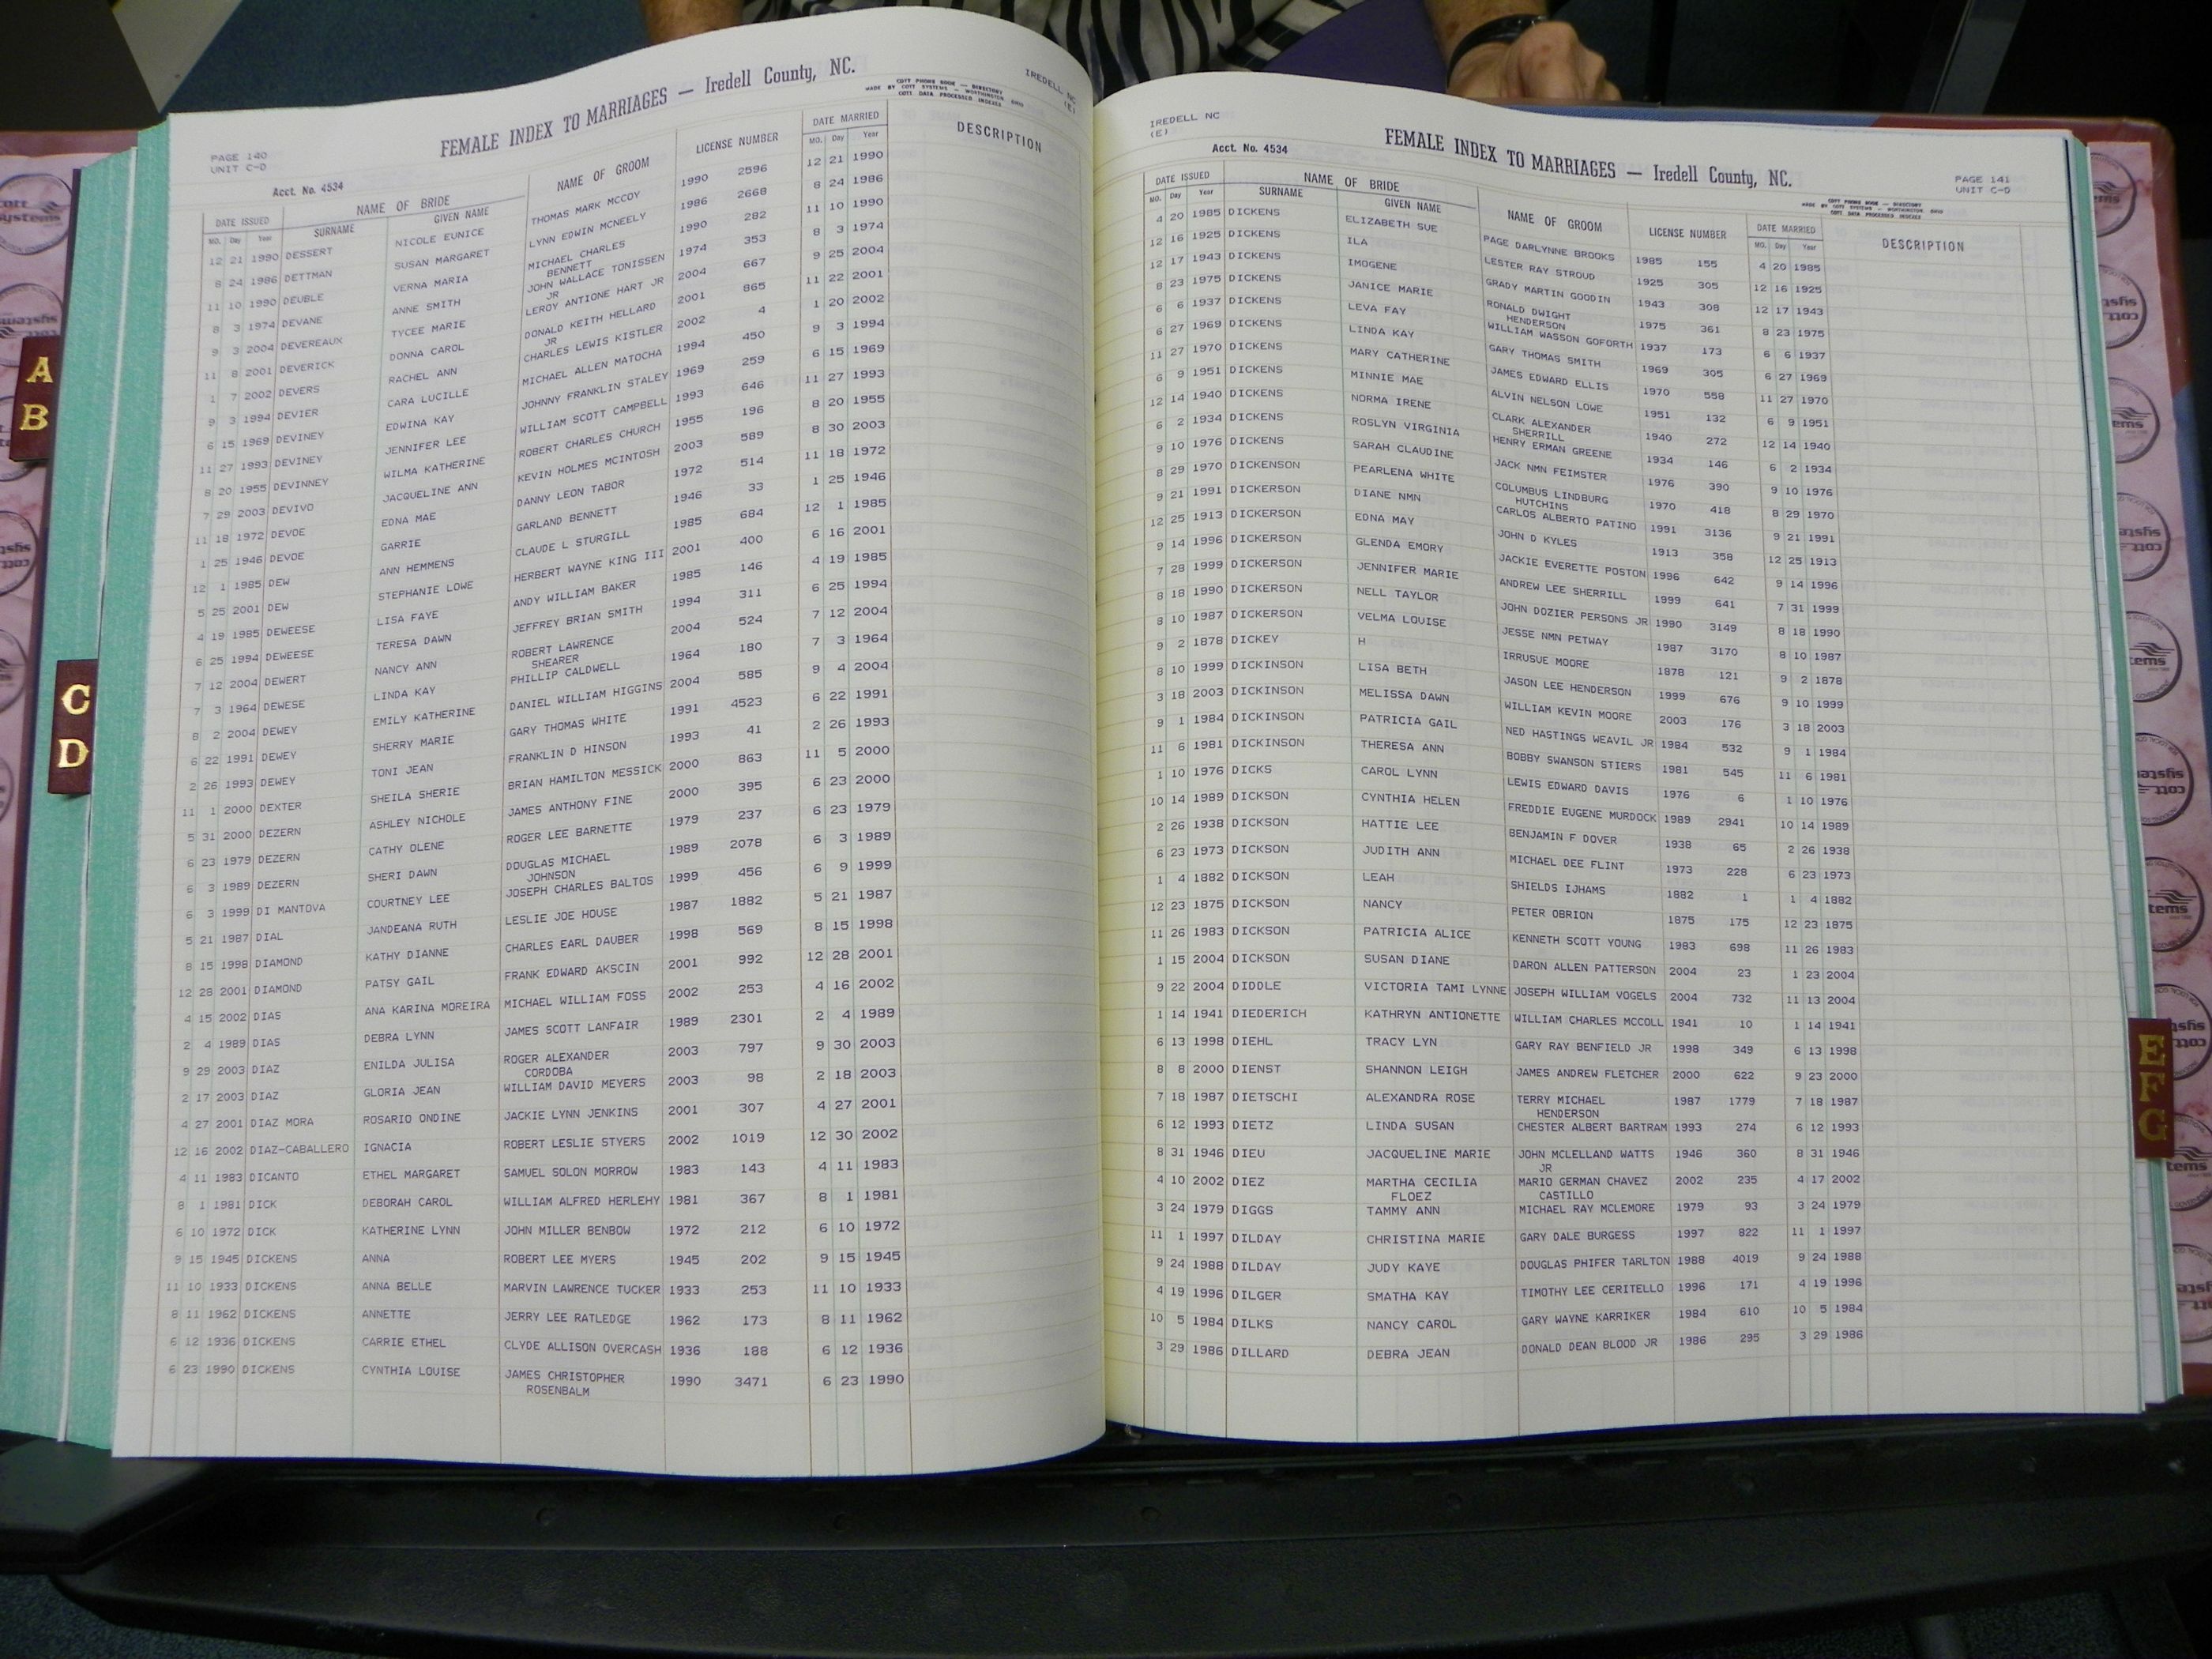 PAGE 140
UNIT C-D
FEMALE INDEX TO MARRIAGES — Iredell County, NC.
COTT PHONE BOOK — DIRECTORY
MADE BY COTT SYSTEMS — WORTHINGTON OHIO
COTT DATA PROCESSED INDEXES
IREDELL NC
(E)
Acct. No. 4534
DATE ISSUED NAME OF BRIDE NAME OF GROOM LICENSE NUMBER DATE MARRIED DESCRIPTION
MO. Day Year SURNAME GIVEN NAME MO. Day Year
12 21 1990 DESSERT NICOLE EUNICE THOMAS MARK MCCOY 1990 2596 12 21 1990
8 24 1986 DETTMAN SUSAN MARGARET LYNN EDWIN MCNEELY 1986 2668 8 24 1986
11 10 1990 DEUBLE VERNA MARIA MICHAEL CHARLES 1990 282 11 10 1990
BENNETT
8 3 1974 DEVANE ANNE SMITH JOHN WALLACE TONISSEN 1974 353 8 3 1974
JR
9 3 2004 DEVEREAUX TYCEE MARIE LEROY ANTIONE HART JR 2004 667 9 25 2004
11 8 2001 DEVERICK DONNA CAROL DONALD KEITH HELLARD 2001 865 11 22 2001
JR
1 7 2002 DEVERS RACHEL ANN CHARLES LEWIS KISTLER 2002 4 1 20 2002
9 3 1994 DEVIER CARA LUCILLE MICHAEL ALLEN MATOCHA 1994 450 9 3 1994
6 15 1969 DEVINEY EDWINA KAY JOHNNY FRANKLIN STALEY 1969 259 6 15 1969
11 27 1993 DEVINEY JENNIFER LEE WILLIAM SCOTT CAMPBELL 1993 646 11 27 1993
8 20 1955 DEVINNEY WILMA KATHERINE ROBERT CHARLES CHURCH 1955 196 8 20 1955
7 29 2003 DEVIVO JACQUELINE ANN KEVIN HOLMES MCINTOSH 2003 589 8 30 2003
11 18 1972 DEVOE EDNA MAE DANNY LEON TABOR 1972 514 11 18 1972
1 25 1946 DEVOE GARRIE GARLAND BENNETT 1946 33 1 25 1946
12 1 1985 DEW ANN HEMMENS CLAUDE L STURGILL 1985 684 12 1 1985
5 25 2001 DEW STEPHANIE LOWE HERBERT WAYNE KING III 2001 400 6 16 2001
4 19 1985 DEWEESE LISA FAYE ANDY WILLIAM BAKER 1985 146 4 19 1985
6 25 1994 DEWEESE TERESA DAWN JEFFREY BRIAN SMITH 1994 311 6 25 1994
7 12 2004 DEWERT NANCY ANN ROBERT LAWRENCE 2004 524 7 12 2004
SHEARER
7 3 1964 DEWESE LINDA KAY PHILLIP CALDWELL 1964 180 7 3 1964
8 2 2004 DEWEY EMILY KATHERINE DANIEL WILLIAM HIGGINS 2004 585 9 4 2004
6 22 1991 DEWEY SHERRY MARIE GARY THOMAS WHITE 1991 4523 6 22 1991
2 26 1993 DEWEY TONI JEAN FRANKLIN D HINSON 1993 41 2 26 1993
11 1 2000 DEXTER SHEILA SHERIE BRIAN HAMILTON MESSICK 2000 863 11 5 2000
5 31 2000 DEZERN ASHLEY NICHOLE JAMES ANTHONY FINE 2000 395 6 23 2000
6 23 1979 DEZERN CATHY OLENE ROGER LEE BARNETTE 1979 237 6 23 1979
6 3 1989 DEZERN SHERI DAWN DOUGLAS MICHAEL 1989 2078 6 3 1989
JOHNSON
6 3 1999 DI MANTOVA COURTNEY LEE JOSEPH CHARLES BALTOS 1999 456 6 9 1999
5 21 1987 DIAL JANDEANA RUTH LESLIE JOE HOUSE 1987 1882 5 21 1987
8 15 1998 DIAMOND KATHY DIANNE CHARLES EARL DAUBER 1998 569 8 15 1998
12 28 2001 DIAMOND PATSY GAIL FRANK EDWARD AKSCIN 2001 992 12 28 2001
4 15 2002 DIAS ANA KARINA MOREIRA MICHAEL WILLIAM FOSS 2002 253 4 16 2002
2 4 1989 DIAS DEBRA LYNN JAMES SCOTT LANFAIR 1989 2301 2 4 1989
9 29 2003 DIAZ ENILDA JULISA ROGER ALEXANDER 2003 797 9 30 2003
CORDOBA
2 17 2003 DIAZ GLORIA JEAN WILLIAM DAVID MEYERS 2003 98 2 18 2003
4 27 2001 DIAZ MORA ROSARIO ONDINE JACKIE LYNN JENKINS 2001 307 4 27 2001
12 16 2002 DIAZ-CABALLERO IGNACIA ROBERT LESLIE STYERS 2002 1019 12 30 2002
4 11 1983 DICANTO ETHEL MARGARET SAMUEL SOLON MORROW 1983 143 4 11 1983
8 1 1981 DICK DEBORAH CAROL WILLIAM ALFRED HERLEHY 1981 367 8 1 1981
6 10 1972 DICK KATHERINE LYNN JOHN MILLER BENBOW 1972 212 6 10 1972
9 15 1945 DICKENS ANNA ROBERT LEE MYERS 1945 202 9 15 1945
11 10 1933 DICKENS ANNA BELLE MARVIN LAWRENCE TUCKER 1933 253 11 10 1933
8 11 1962 DICKENS ANNETTE JERRY LEE RATLEDGE 1962 173 8 11 1962
6 12 1936 DICKENS CARRIE ETHEL CLYDE ALLISON OVERCASH 1936 188 6 12 1936
6 23 1990 DICKENS CYNTHIA LOUISE JAMES CHRISTOPHER 1990 3471 6 23 1990
ROSENBALM
IREDELL NC
(E)
Acct. No. 4534
FEMALE INDEX TO MARRIAGES — Iredell County, NC.
PAGE 141
UNIT C-D
COTT PHONE BOOK — DIRECTORY
MADE BY COTT SYSTEMS — WORTHINGTON OHIO
COTT DATA PROCESSED INDEXES
DATE ISSUED NAME OF BRIDE NAME OF GROOM LICENSE NUMBER DATE MARRIED DESCRIPTION
MO. Day Year SURNAME GIVEN NAME MO. Day Year
4 20 1985 DICKENS ELIZABETH SUE PAGE DARLYNNE BROOKS 1985 155 4 20 1985
12 16 1925 DICKENS ILA LESTER RAY STROUD 1925 305 12 16 1925
12 17 1943 DICKENS IMOGENE GRADY MARTIN GOODIN 1943 308 12 17 1943
8 23 1975 DICKENS JANICE MARIE RONALD DWIGHT 1975 361 8 23 1975
HENDERSON
6 6 1937 DICKENS LEVA FAY WILLIAM WASSON GOFORTH 1937 173 6 6 1937
6 27 1969 DICKENS LINDA KAY GARY THOMAS SMITH 1969 305 6 27 1969
11 27 1970 DICKENS MARY CATHERINE JAMES EDWARD ELLIS 1970 558 11 27 1970
6 9 1951 DICKENS MINNIE MAE ALVIN NELSON LOWE 1951 132 6 9 1951
12 14 1940 DICKENS NORMA IRENE CLARK ALEXANDER 1940 272 12 14 1940
SHERRILL
6 2 1934 DICKENS ROSLYN VIRGINIA HENRY ERMAN GREENE 1934 146 6 2 1934
9 10 1976 DICKENS SARAH CLAUDINE JACK NMN FEIMSTER 1976 390 9 10 1976
8 29 1970 DICKENSON PEARLENA WHITE COLUMBUS LINDBURG 1970 418 8 29 1970
HUTCHINS
9 21 1991 DICKERSON DIANE NMN CARLOS ALBERTO PATINO 1991 3136 9 21 1991
12 25 1913 DICKERSON EDNA MAY JOHN D KYLES 1913 358 12 25 1913
9 14 1996 DICKERSON GLENDA EMORY JACKIE EVERETTE POSTON 1996 642 9 14 1996
7 28 1999 DICKERSON JENNIFER MARIE ANDREW LEE SHERRILL 1999 641 7 31 1999
8 18 1990 DICKERSON NELL TAYLOR JOHN DOZIER PERSONS JR 1990 3149 8 18 1990
8 10 1987 DICKERSON VELMA LOUISE JESSE NMN PETWAY 1987 3170 8 10 1987
9 2 1878 DICKEY H IRRUSUE MOORE 1878 121 9 2 1878
8 10 1999 DICKINSON LISA BETH JASON LEE HENDERSON 1999 676 9 10 1999
3 18 2003 DICKINSON MELISSA DAWN WILLIAM KEVIN MOORE 2003 176 3 18 2003
9 1 1984 DICKINSON PATRICIA GAIL NED HASTINGS WEAVIL JR 1984 532 9 1 1984
11 6 1981 DICKINSON THERESA ANN BOBBY SWANSON STIERS 1981 545 11 6 1981
1 10 1976 DICKS CAROL LYNN LEWIS EDWARD DAVIS 1976 6 1 10 1976
10 14 1989 DICKSON CYNTHIA HELEN FREDDIE EUGENE MURDOCK 1989 2941 10 14 1989
2 26 1938 DICKSON HATTIE LEE BENJAMIN F DOVER 1938 65 2 26 1938
6 23 1973 DICKSON JUDITH ANN MICHAEL DEE FLINT 1973 228 6 23 1973
1 4 1882 DICKSON LEAH SHIELDS IJHAMS 1882 1 1 4 1882
12 23 1875 DICKSON NANCY PETER OBRION 1875 175 12 23 1875
11 26 1983 DICKSON PATRICIA ALICE KENNETH SCOTT YOUNG 1983 698 11 26 1983
1 15 2004 DICKSON SUSAN DIANE DARON ALLEN PATTERSON 2004 23 1 23 2004
9 22 2004 DIDDLE VICTORIA TAMI LYNNE JOSEPH WILLIAM VOGELS 2004 732 11 13 2004
1 14 1941 DIEDERICH KATHRYN ANTIONETTE WILLIAM CHARLES MCCOLL 1941 10 1 14 1941
6 13 1998 DIEHL TRACY LYN GARY RAY BENFIELD JR 1998 349 6 13 1998
8 8 2000 DIENST SHANNON LEIGH JAMES ANDREW FLETCHER 2000 622 9 23 2000
7 18 1987 DIETSCHI ALEXANDRA ROSE TERRY MICHAEL 1987 1779 7 18 1987
HENDERSON
6 12 1993 DIETZ LINDA SUSAN CHESTER ALBERT BARTRAM 1993 274 6 12 1993
8 31 1946 DIEU JACQUELINE MARIE JOHN MCLELLAND WATTS 1946 360 8 31 1946
JR
4 10 2002 DIEZ MARTHA CECILIA MARIO GERMAN CHAVEZ 2002 235 4 17 2002
FLOEZ CASTILLO
3 24 1979 DIGGS TAMMY ANN MICHAEL RAY MCLEMORE 1979 93 3 24 1979
11 1 1997 DILDAY CHRISTINA MARIE GARY DALE BURGESS 1997 822 11 1 1997
9 24 1988 DILDAY JUDY KAYE DOUGLAS PHIFER TARLTON 1988 4019 9 24 1988
4 19 1996 DILGER SMATHA KAY TIMOTHY LEE CERITELLO 1996 171 4 19 1996
10 5 1984 DILKS NANCY CAROL GARY WAYNE KARRIKER 1984 610 10 5 1984
3 29 1986 DILLARD DEBRA JEAN DONALD DEAN BLOOD JR 1986 295 3 29 1986
A
B
C
D
E
F
G